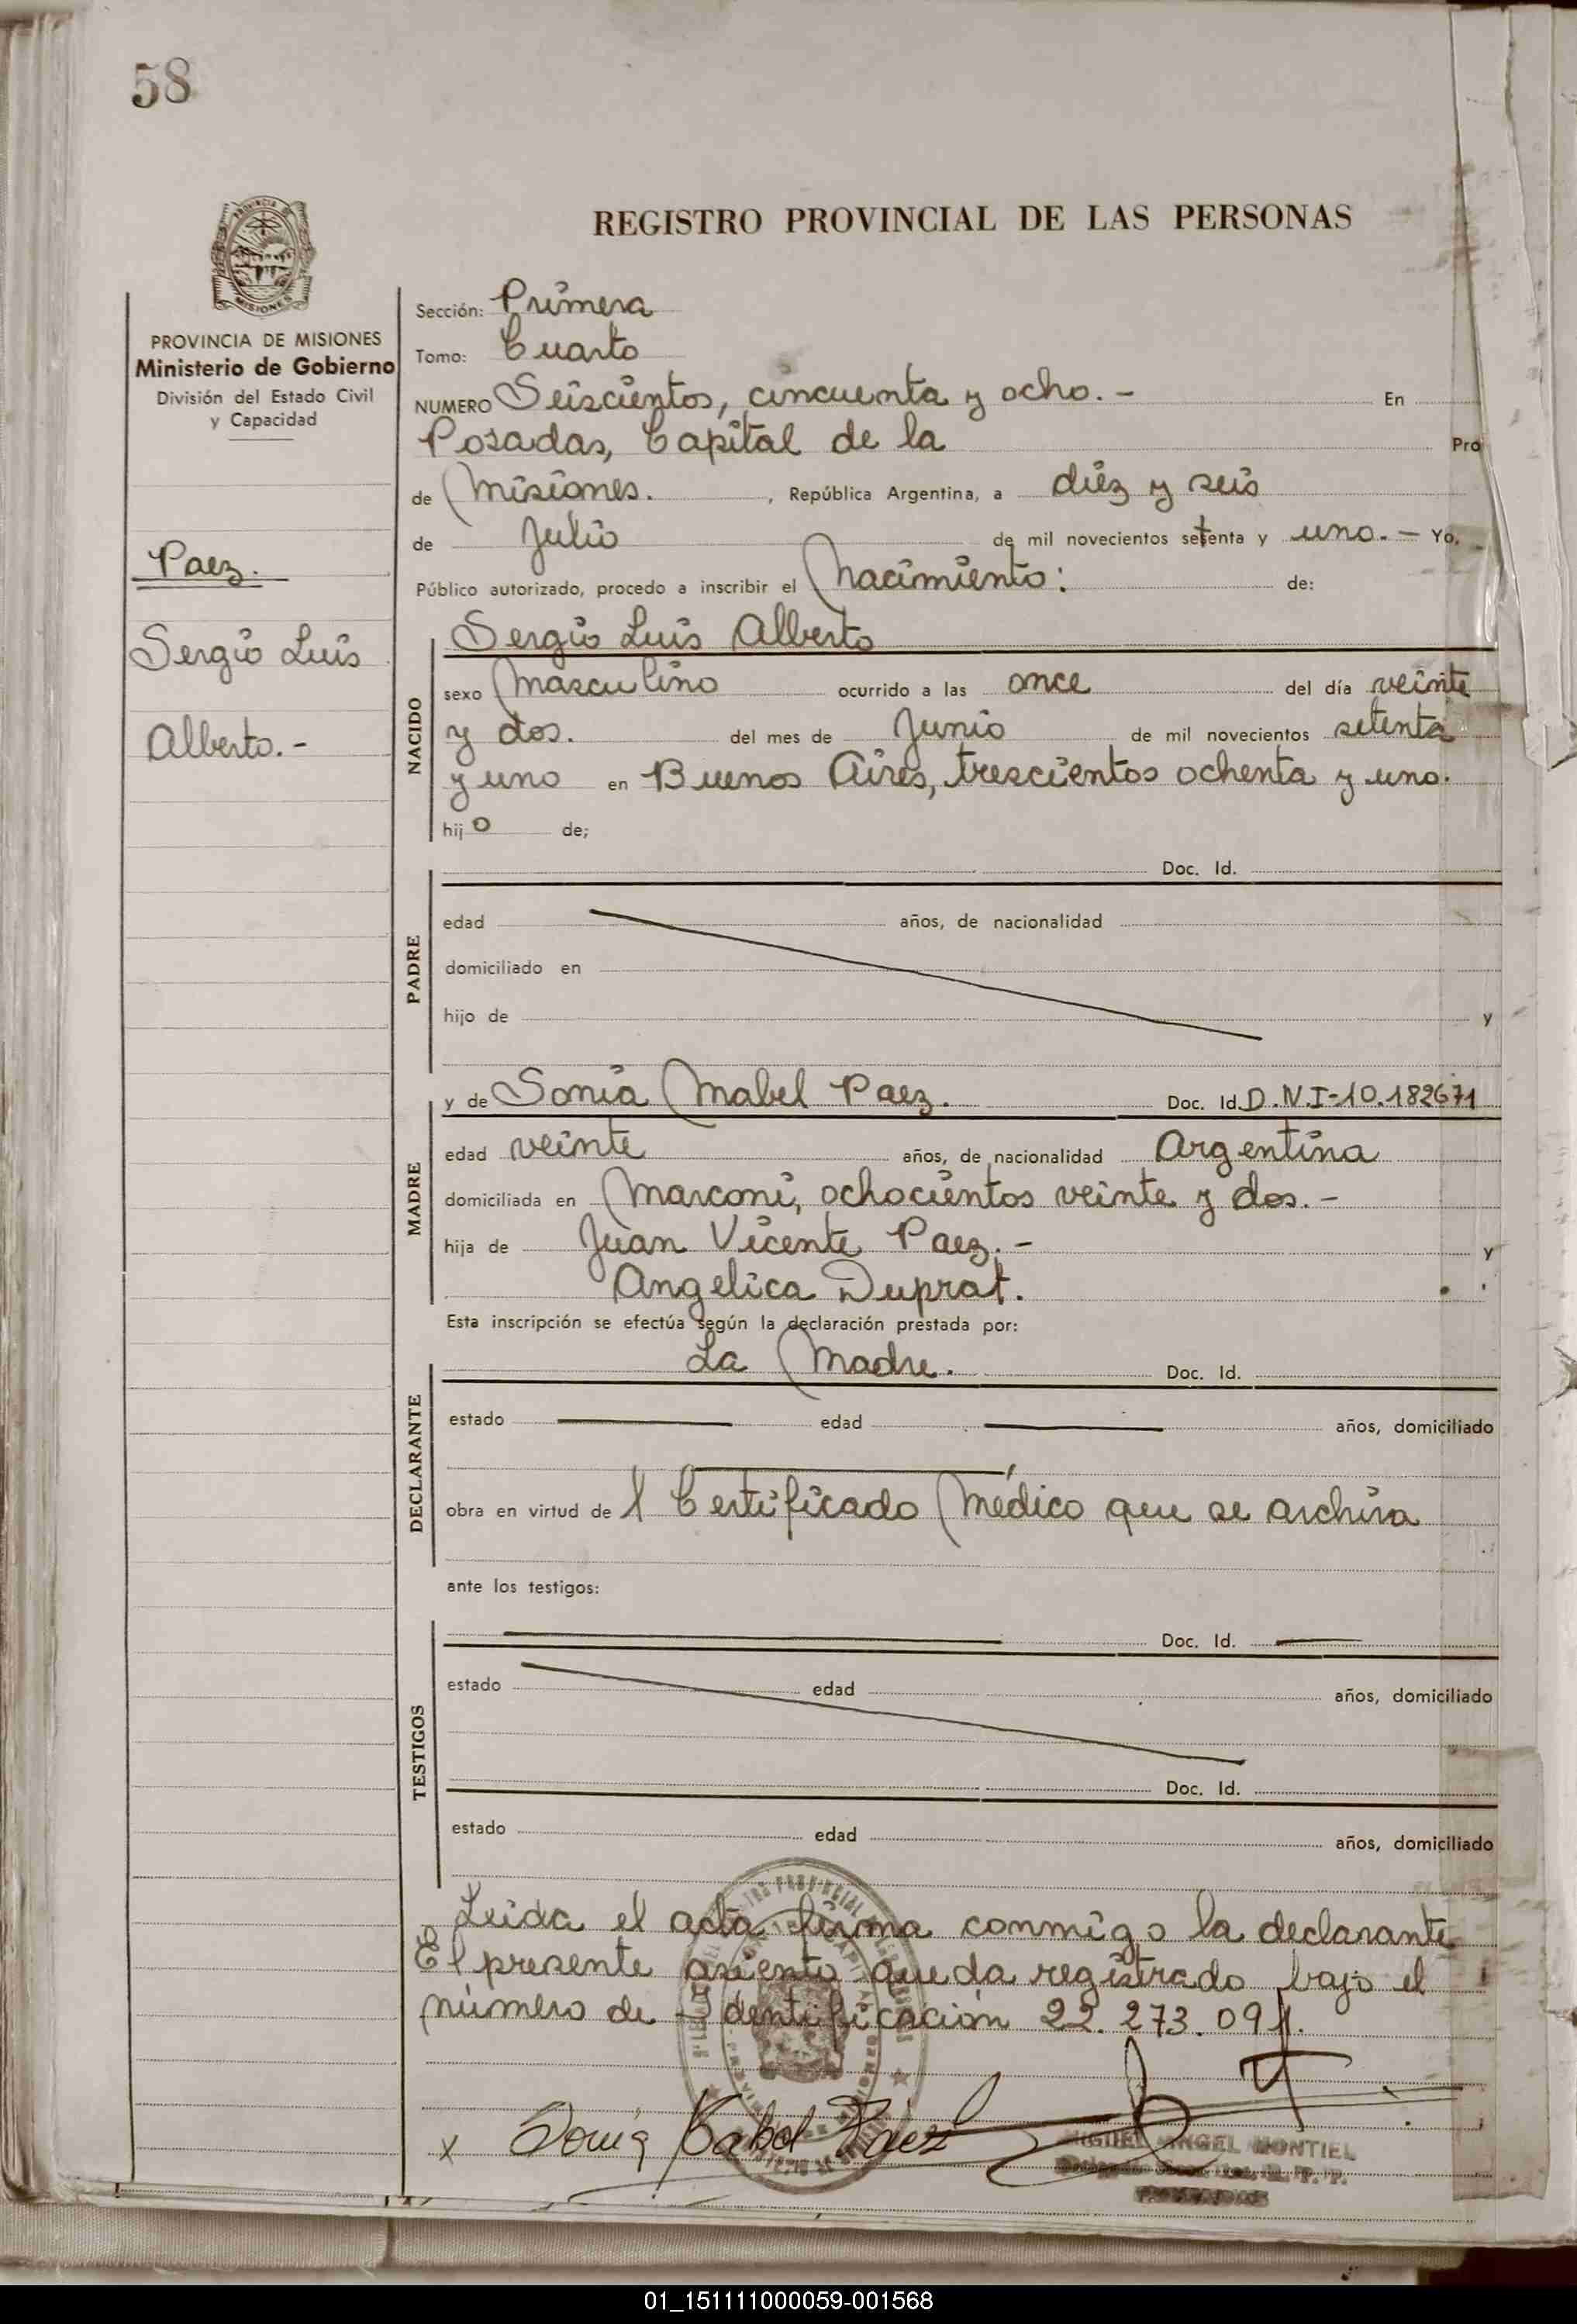 58
PROVINCIA DE MISIONES
Ministerio de Gobierno
División del Estado Civil
y Capacidad
Paez.
Sergio Luis
Alberto.-
REGISTRO PROVINCIAL DE LAS PERSONAS
Sección: Primera
Tomo: Cuarto
NUMERO Seiscientos, cincuenta y ocho.- En
Posadas, Capital de la Pro
de Misiones. , República Argentina, a diez y seis
de Julio de mil novecientos setenta y uno.- Yo,
Público autorizado, procedo a inscribir el Nacimiento: de:
NACIDO
Sergio Luis Alberto
sexo Masculino ocurrido a las once del día veinte
y dos. del mes de Junio de mil novecientos setenta
y uno en Buenos Aires, trescientos ochenta y uno.
hijo de;
PADRE
Doc. Id.
edad años, de nacionalidad
domiciliado en
hijo de y
MADRE
y de Sonia Mabel Paez. Doc. Id. D.N.I-10.182671
edad veinte años, de nacionalidad Argentina
domiciliada en Marconi, ochocientos veinte y dos.-
hija de Juan Vicente Paez.- y
Angelica Duprat.
Esta inscripción se efectúa según la declaración prestada por:
DECLARANTE
La Madre. Doc. Id.
estado edad años, domiciliado
obra en virtud de l Certificado Médico que se archiva
ante los testigos:
TESTIGOS
Doc. Id.
estado edad años, domiciliado
Doc. Id.
estado edad años, domiciliado
Leida el acta firma conmigo la declarante
El presente asiento queda registrado bajo el
número de Identificación 22.273.091.
x Sonia Mabel Páez
MIGUEL ANGEL MONTIEL
01_151111000059-001568